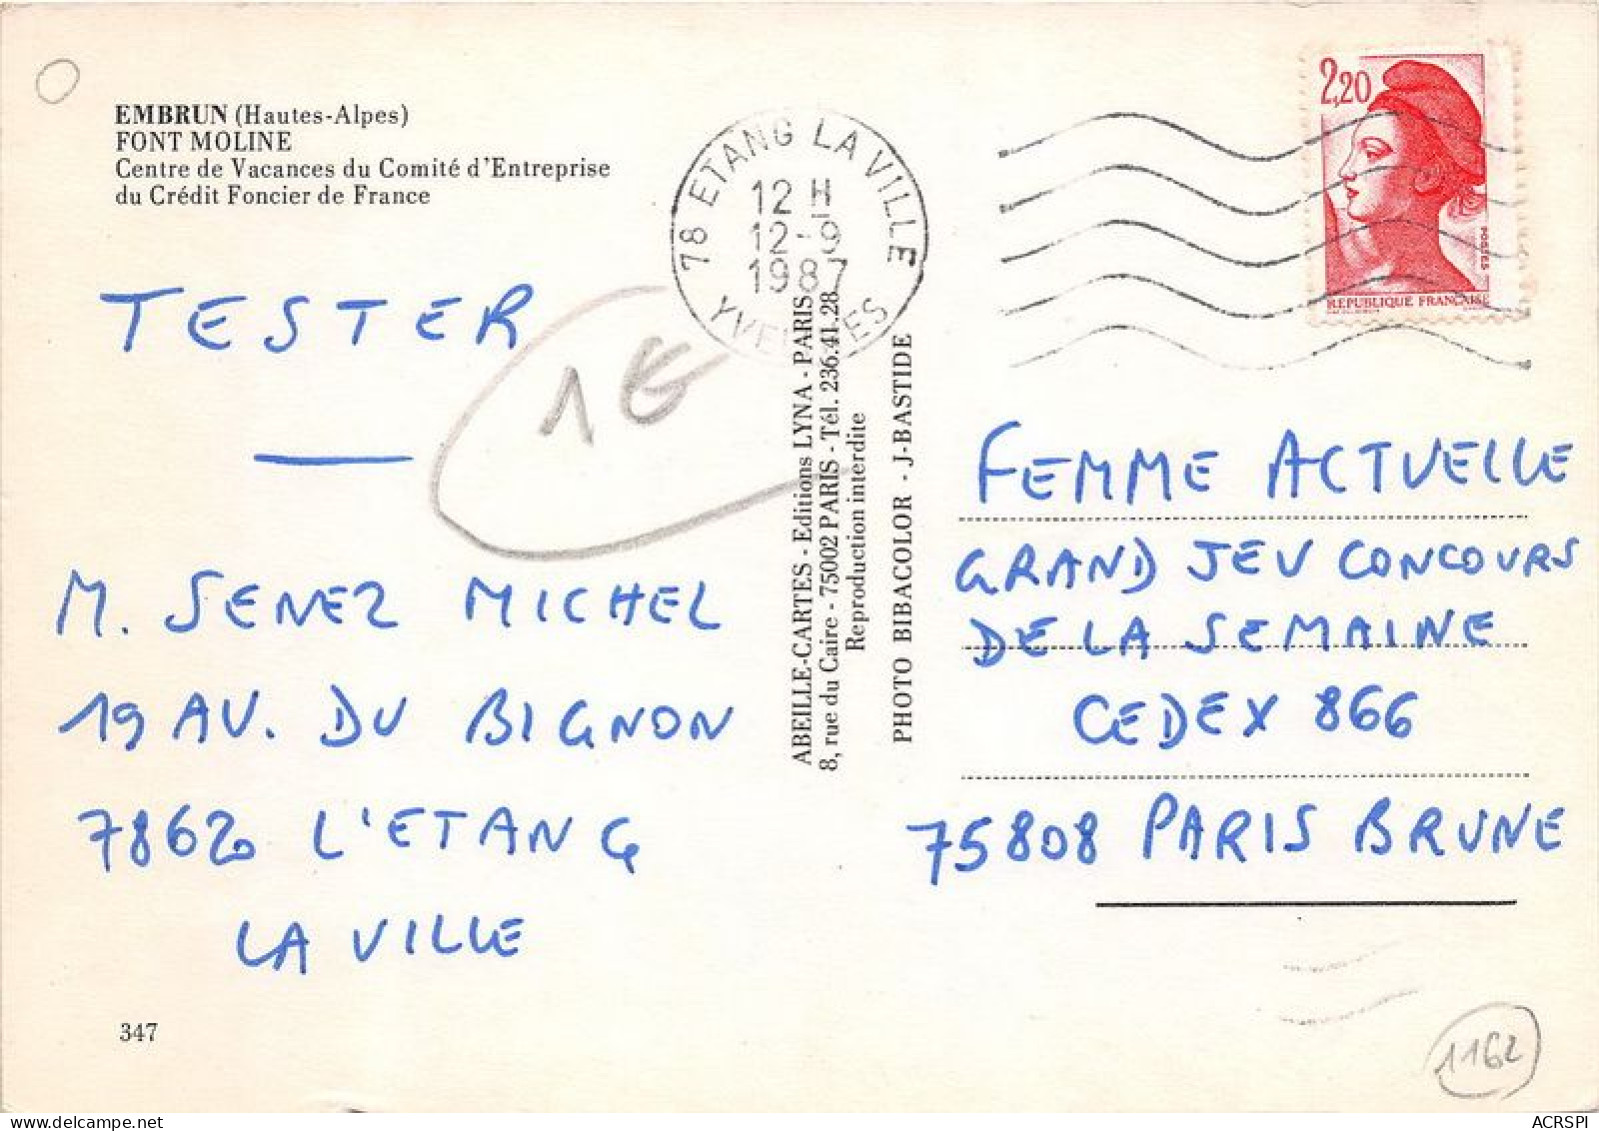 EMBRUN (Hautes-Alpes)
FONT MOLINE
Centre de Vacances du Comité d'Entreprise
du Crédit Foncier de France
TESTER
1€
M. SENEZ MICHEL
19 AV. DU BIGNON
78620 L'ETANG
LA VILLE
347
78 ETANG LA VILLE
12 H
12-9
1987
YVELINES
ABEILLE-CARTES - Editions LYNA - PARIS
8, rue du Caire - 75002 PARIS - Tél. 236.41.28
Reproduction interdite
PHOTO BIBACOLOR - J-BASTIDE
2,20
POSTES
REPUBLIQUE FRANÇAISE
FEMME ACTUELLE
GRAND JEU CONCOURS
DE LA SEMAINE
CEDEX 866
75808 PARIS BRUNE
1162
ACRSPI